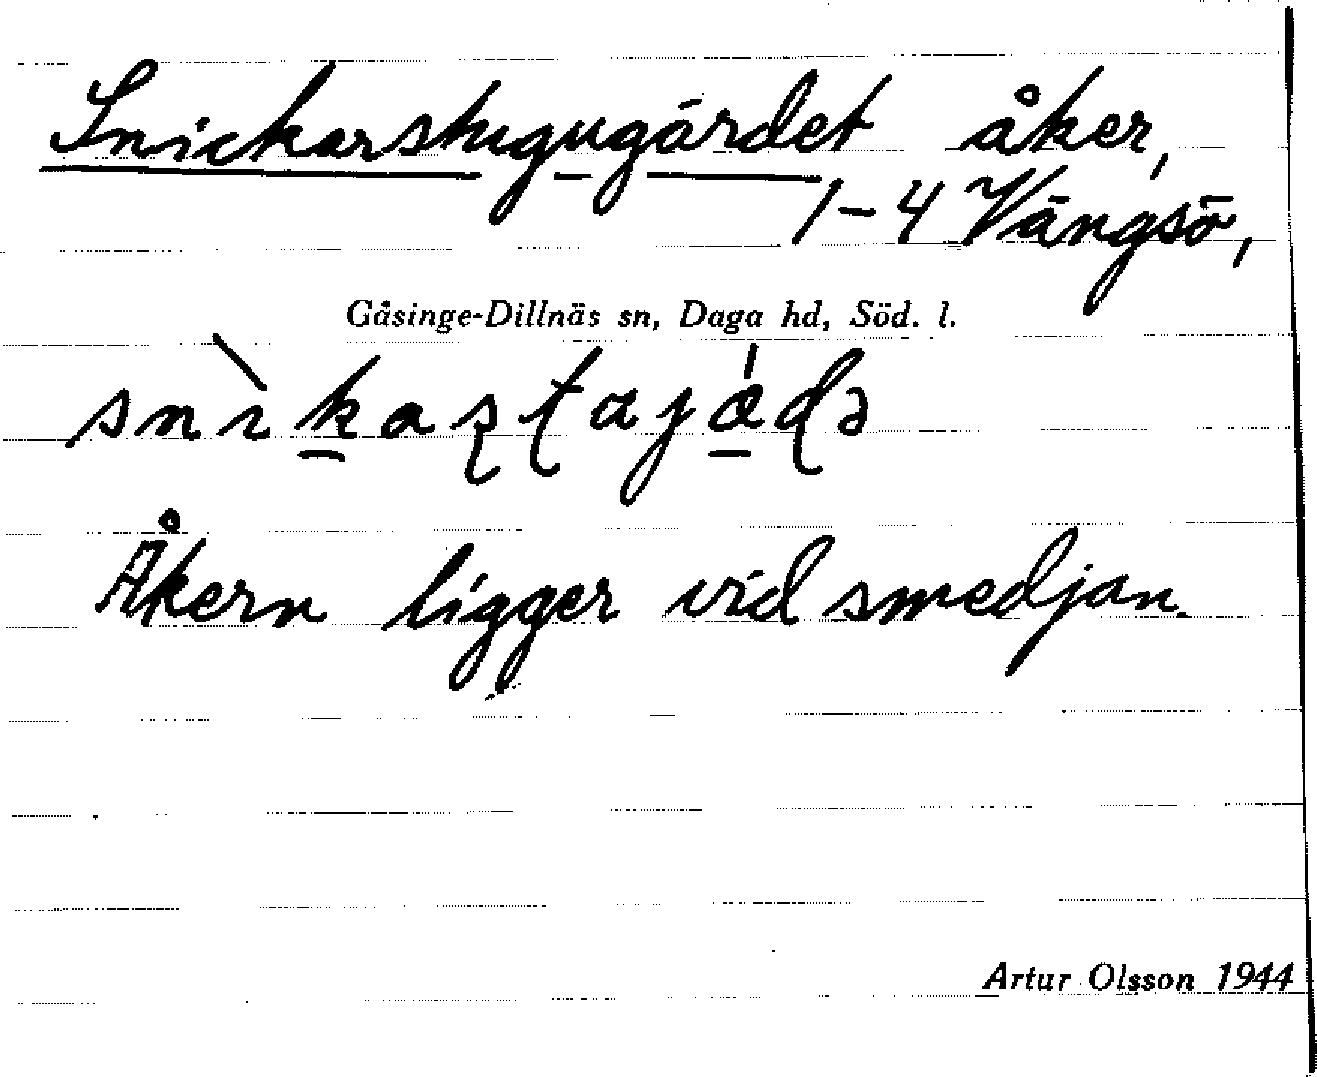 Snickarstugugärdet åker,
1-4 Vängsö,
Gåsinge-Dillnäs sn, Daga hd, Söd. l.
Åkern ligger vid smedjan.
Artur Olsson 1944